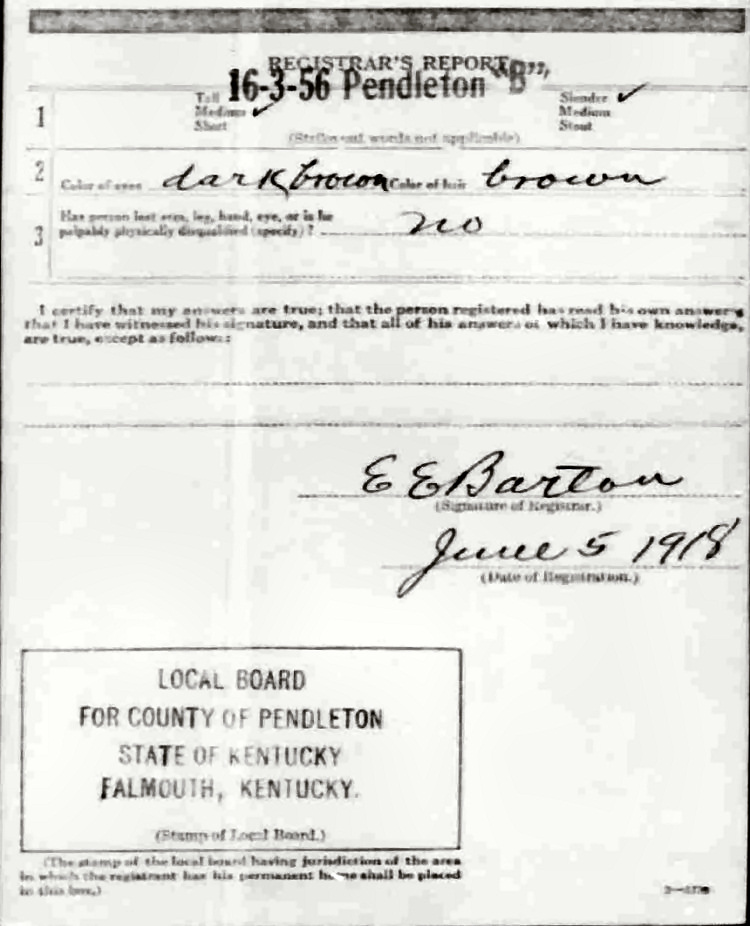 REGISTRAR'S REPORT
16-3-56 Pendleton "B"
1
Tall
Medium ✓
Short
Slender ✓
Medium
Stout
(Strike out words not applicable)
2 Color of eyes dark brown Color of hair brown
3
Has person lost arm, leg, hand, eye, or is he
palpably physically disqualified (specify)? no
I certify that my answers are true; that the person registered has read his own answers
that I have witnessed his signature, and that all of his answers of which I have knowledge,
are true, except as follows:
E E Barton
(Signature of Registrar.)
June 5 1918
(Date of Registration.)
LOCAL BOARD
FOR COUNTY OF PENDLETON
STATE OF KENTUCKY
FALMOUTH, KENTUCKY.
(Stamp of Local Board.)
(The stamp of the local board having jurisdiction of the area
in which the registrant has his permanent home shall be placed
in this box.)